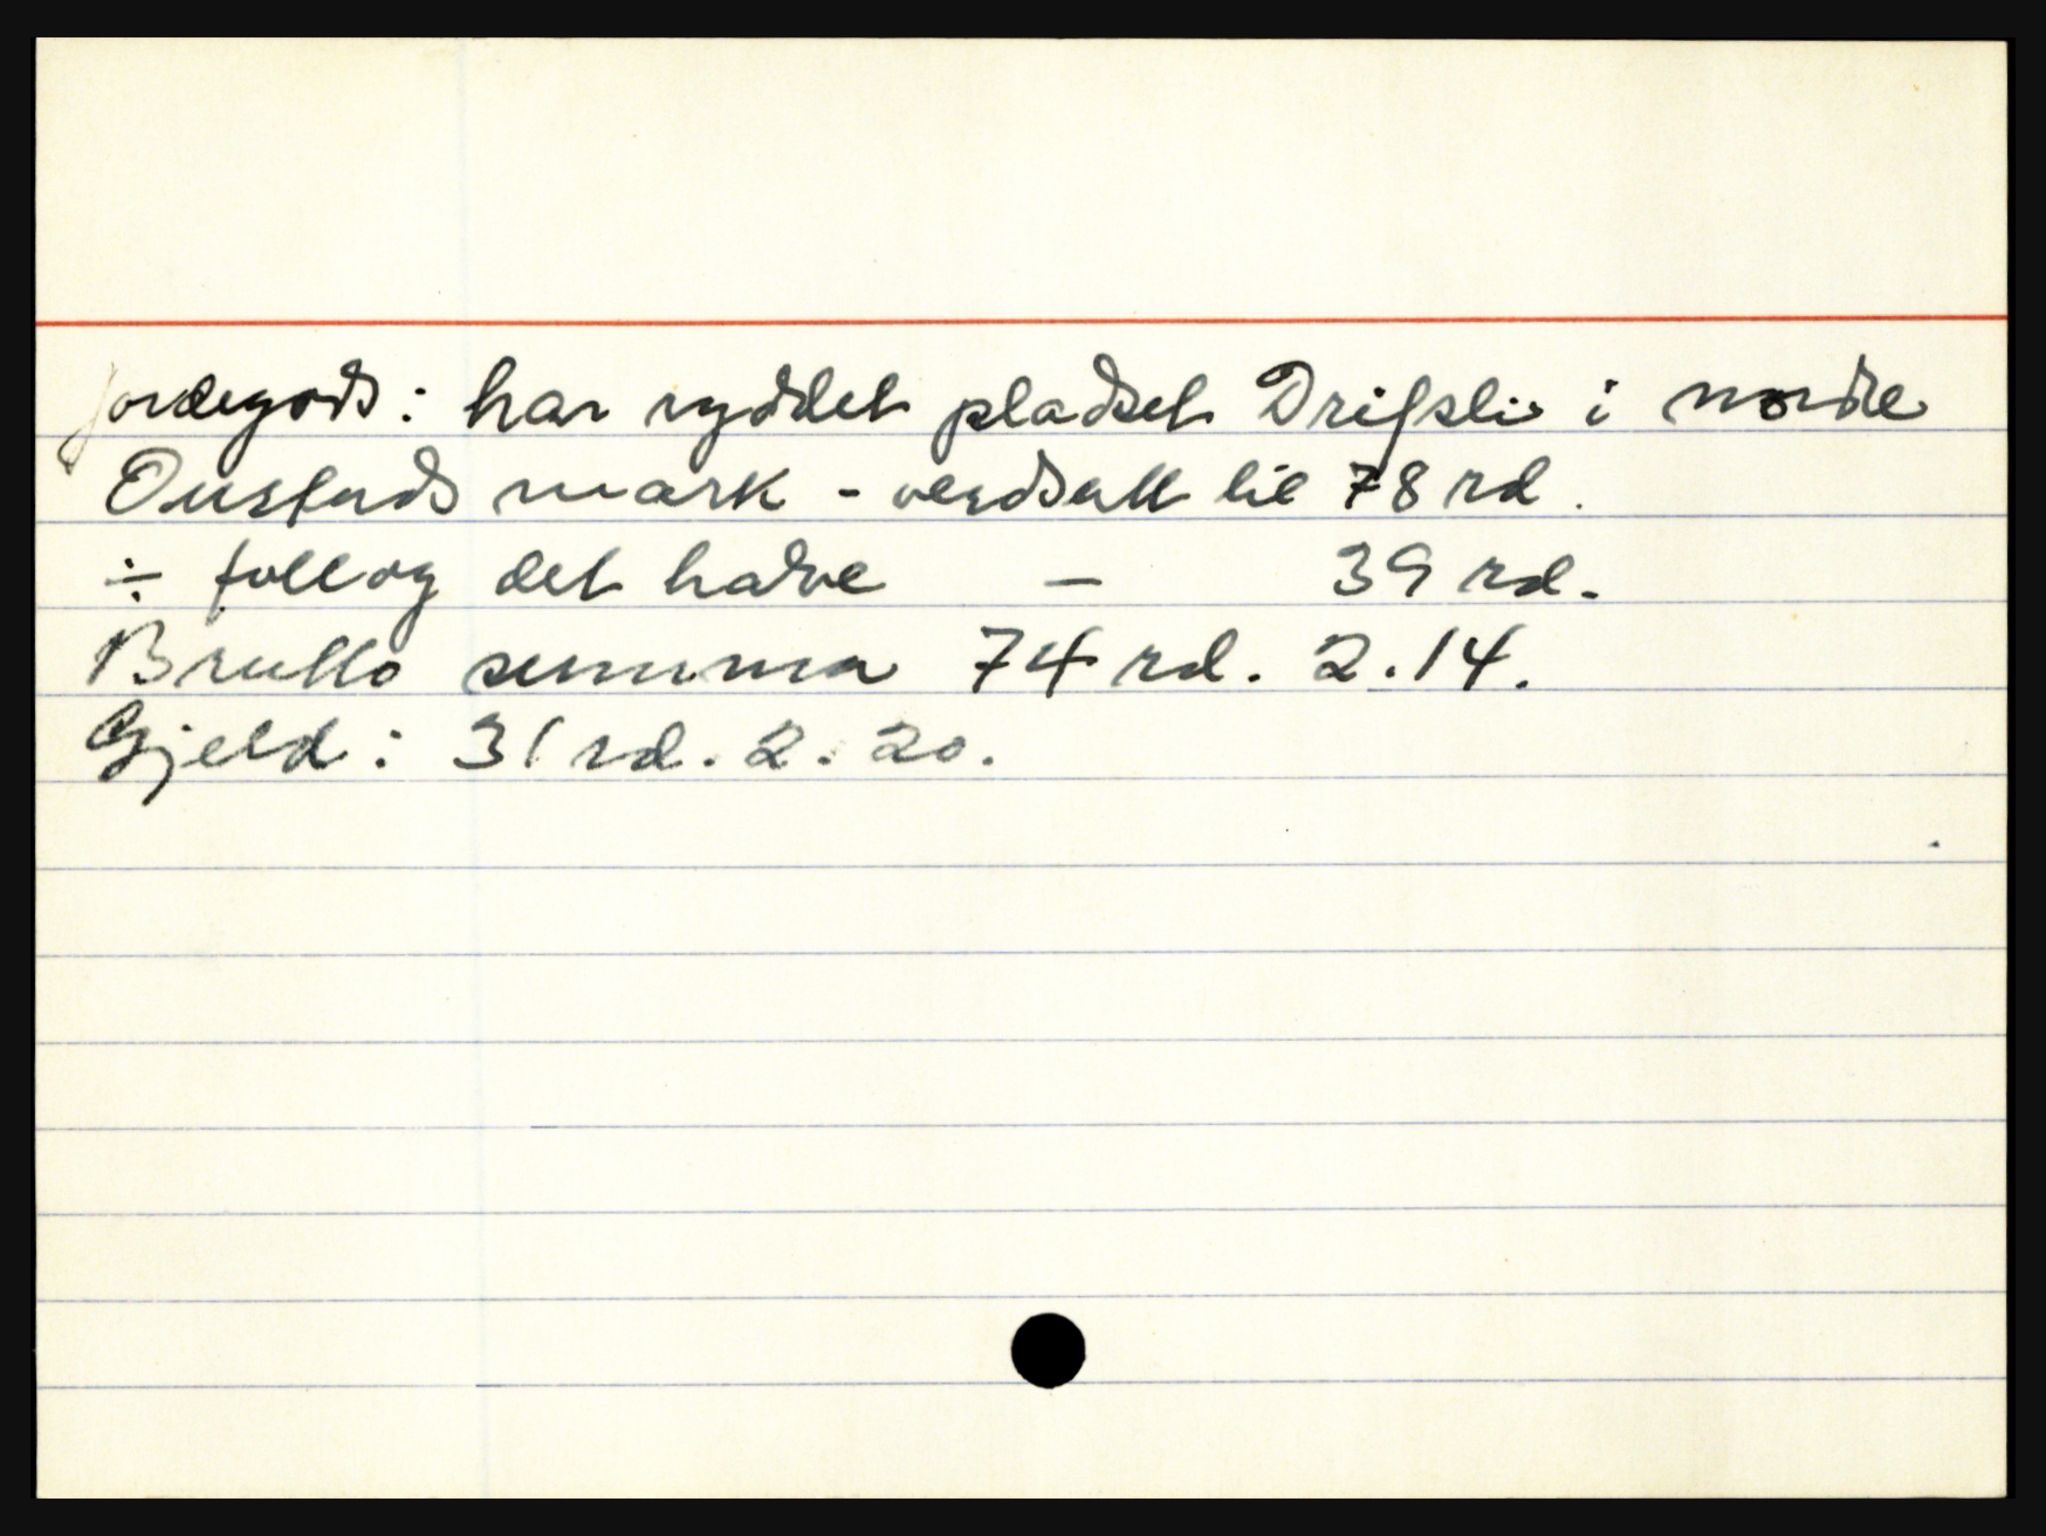 Jordegods: har ryddet pladset Drifsli i nordre
Ousluds mark - verdsatt til 78 rd.
÷ follog det halve - 39 rd.
Brutto summa 74 rd. 2.14.
Gjeld: 31 rd. 2. 20.